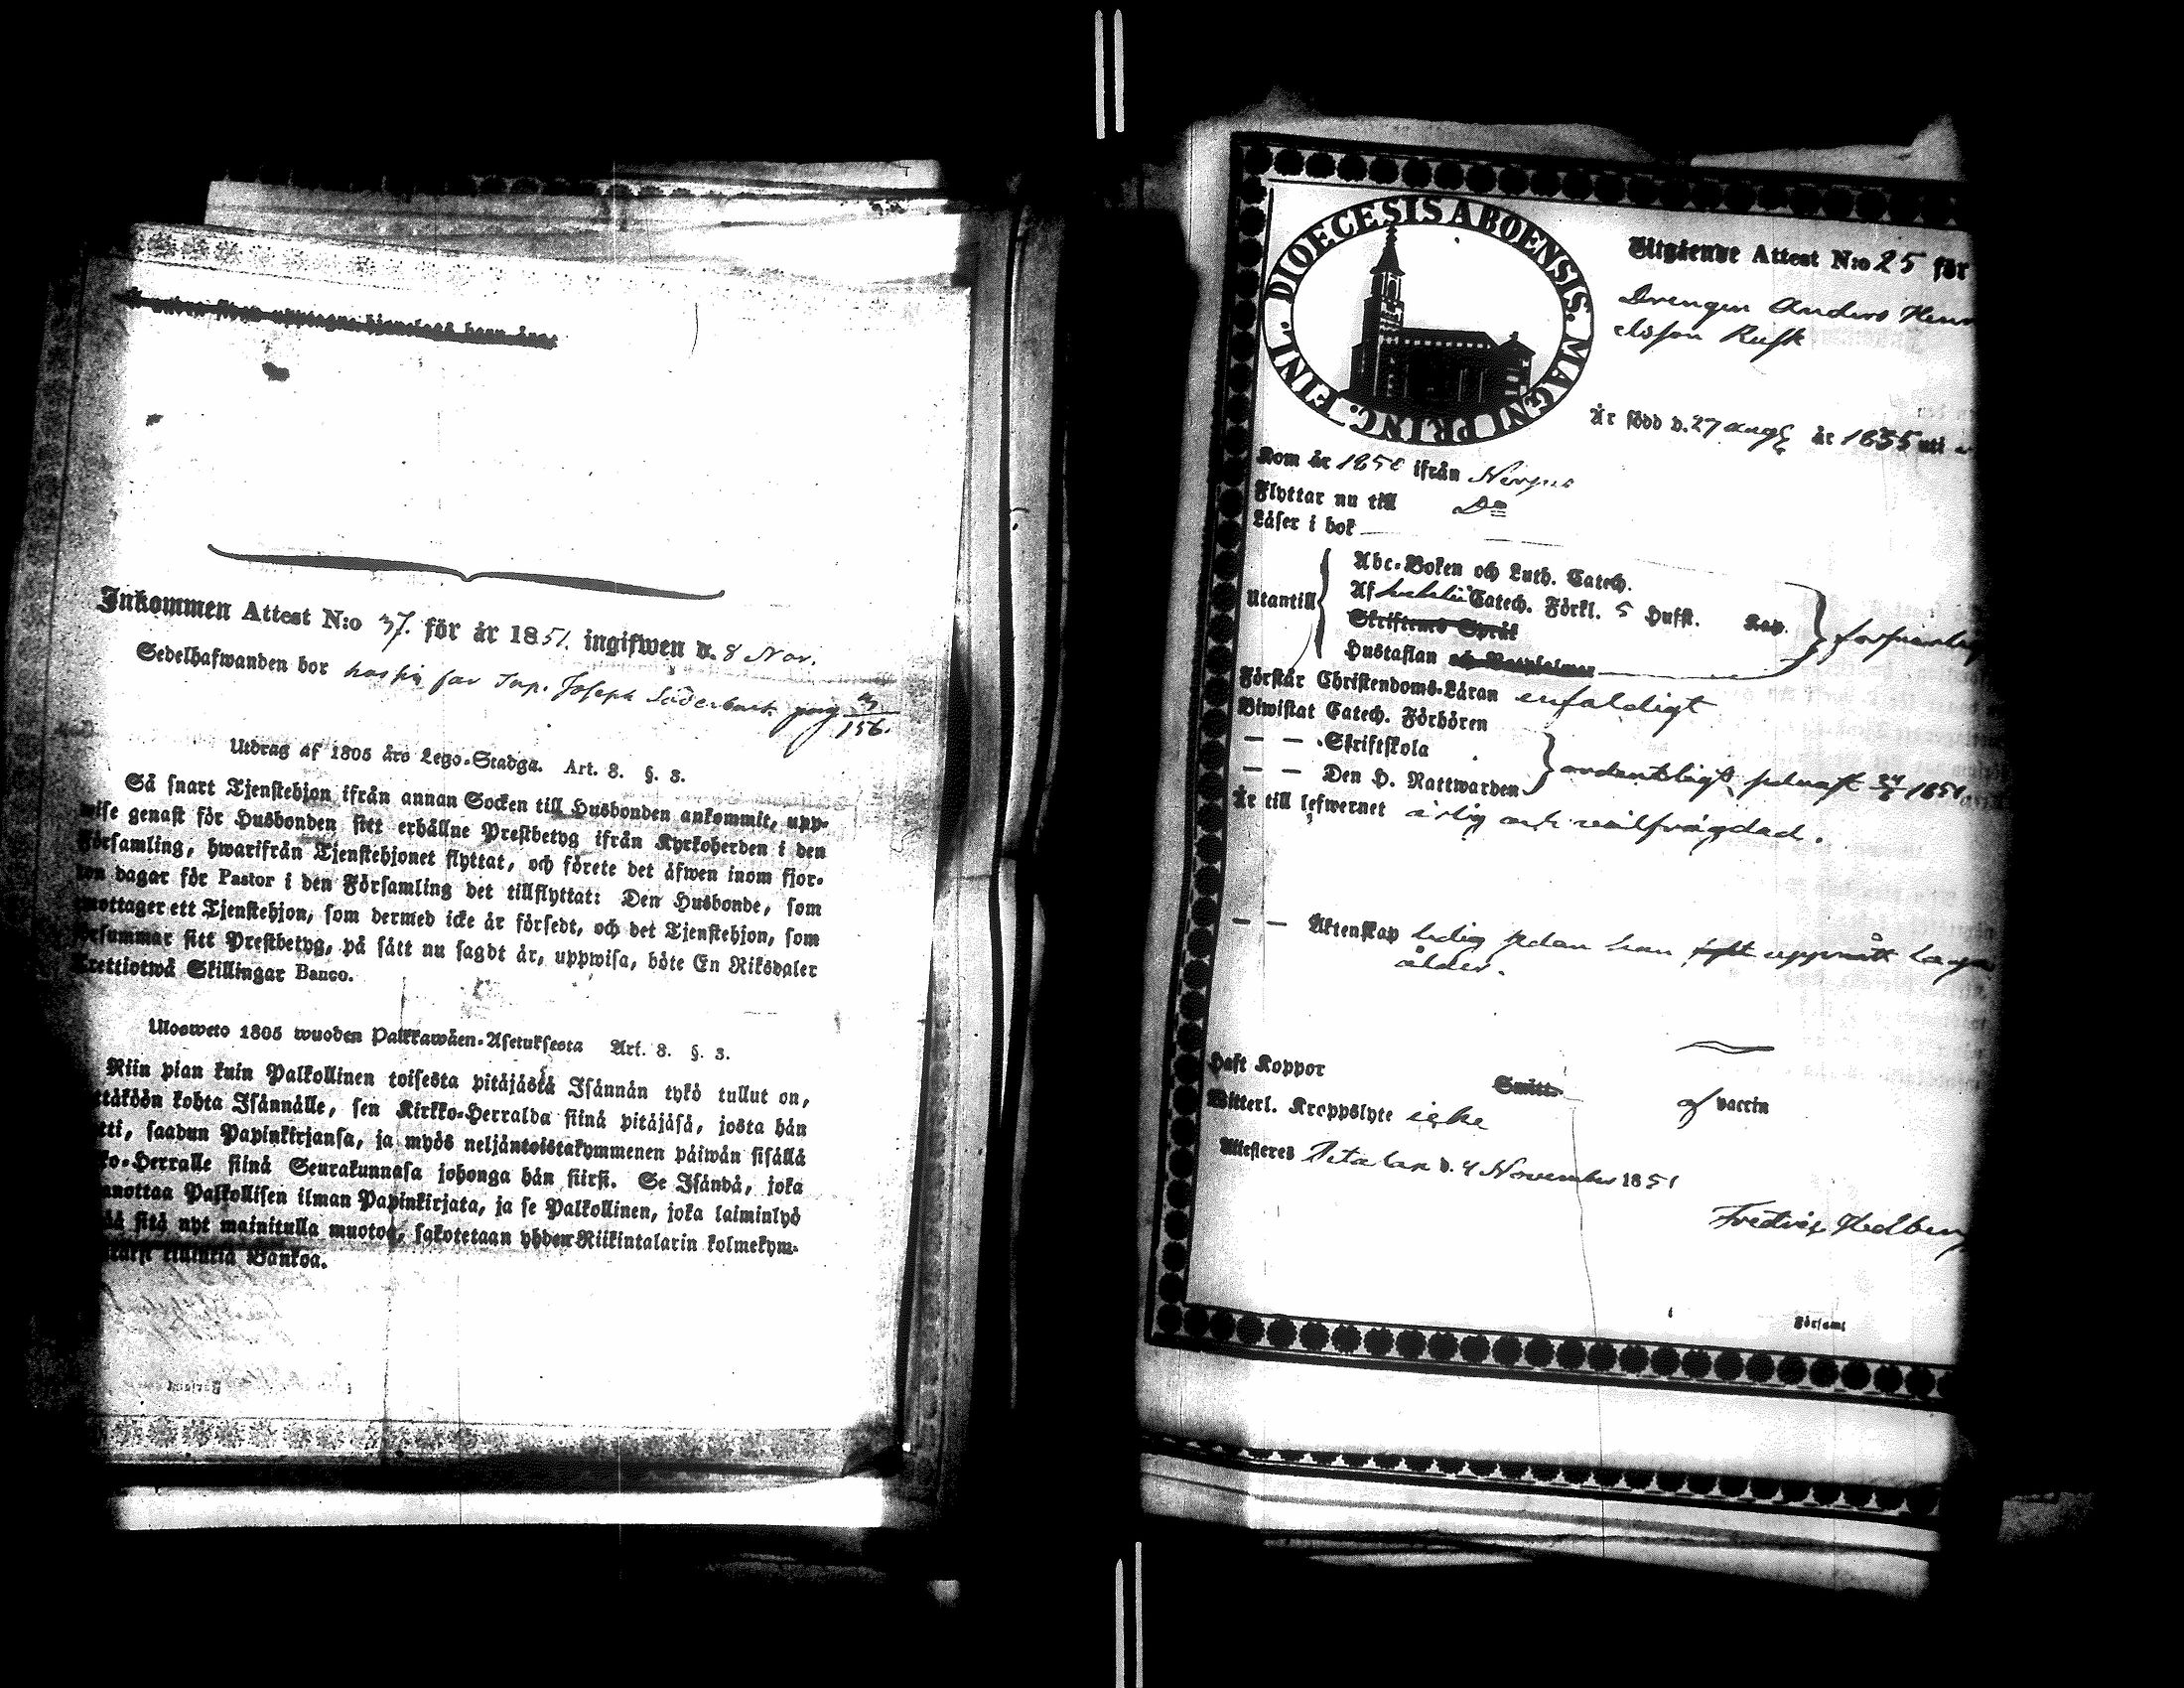 Inkommen Attest N:o 37. för år 1851. ingifwen d. 8 Nov.
Sedelhafwanden bor hos sin far Inp. Joseph Söderback pag 156.
Utdrag af 1805 års Lego-Stadga. Art. 8. §. 3.
Så snart Tjenstehjon ifrån annan Socken till Husbonden ankommit, upp-
wise genast för Husbonden sitt erhållne Prestbetyg ifrån Kyrkoherden i den
Församling, hwarifrån Tjenstehjonet flyttat, och förete det äfwen inom fjor-
ton dagar för Pastor i den Församling det tillflyttat: Den Husbonde, som
emottager ett Tjenstehjon, som dermed icke är försedt, och det Tjenstehjon, som
försummar sitt Prestbetyg, på sätt nu sagdt är, uppwisa, böte En Riksdaler
Trettiotwå Skillingar Banco.
Ulosweto 1805 wuoden Palkkawäen-Asetuksesta Art. 8. §. 3.
Niin pian kuin Palkollinen toisesta pitäjästä Isännän tykö tullut on,
kohta Isännälle, sen Kirkko-Herralda siinä pitäjäsä, josta hän
saadun Papinkirjansa, ja myös neljäntoistakymmenen päiwän sisällä
Herralle siinä Seurakunnasa johonga hän siirsi. Se Isändä, joka
Palkollisen ilman Papinkirjata, ja se Palkollinen, joka laiminlyö
sitä nyt mainitulla muotoa, sakotetaan yhden Riikintalarin kolmekym-
Bankoa.
DIOECESIS ABOENSIS. MAGNI PRINC. FINL.
Utgående Attest N:o 25 för
Drengen Anders Henr
elsson Rusk
Är född d. 27 aug år 1835 uti
Kom år 1850 ifrån Nerpes
Flyttar nu till Do
Läser i bok
Abc-Boken och Luth. Catech.
Utantill Af Catech. Förkl. 5 Hufst. Kap.
Skriftenes Språk
Hustaflan
Förstår Christendoms-Läran enfaldigt
Biwistat Catech. Förhören
— — Skriftskola
— — Den H. Nattwarden ordentligt, senast 1851.
Är till lefwernet ärlig och wälfrägdad.
— — Äktenskap ledig sedan han uppnått laga
ålder.
Haft Koppor Smitt. af vaccin
Witterl. Kroppslyte icke
Attesteres Petalax d. 4 November 1851
Fredrik Hedberg
Församl